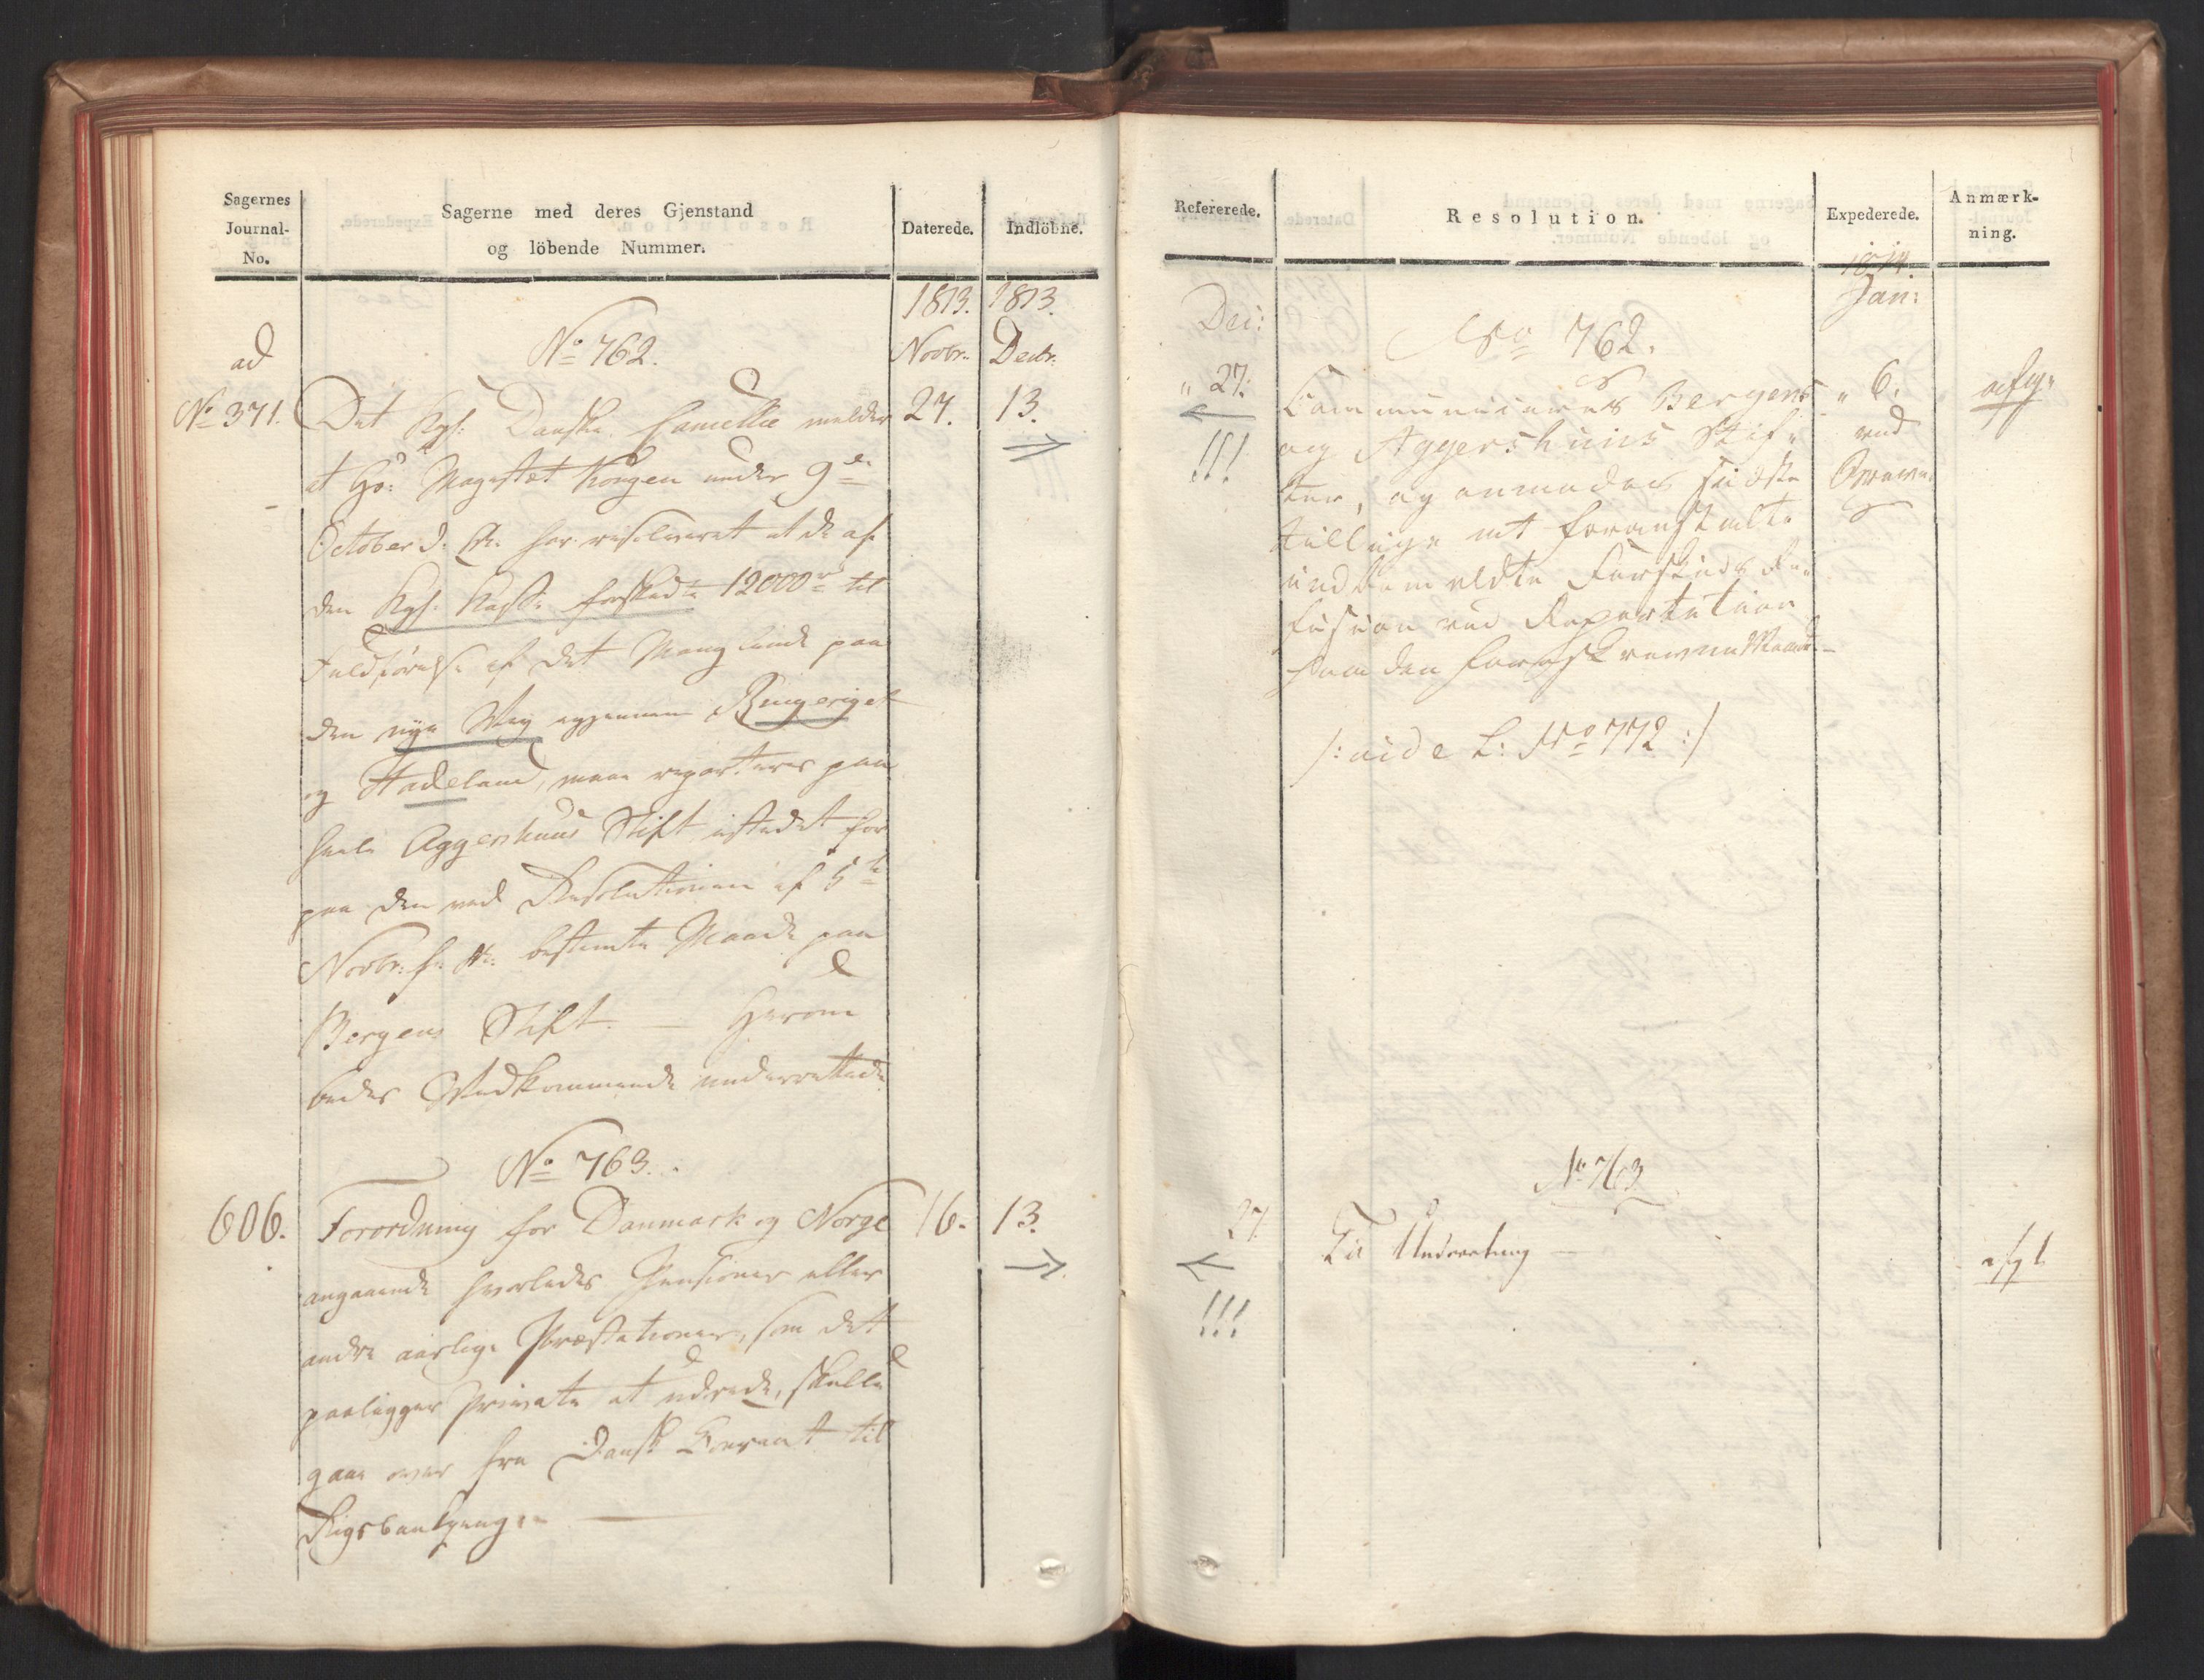 Sagernes
Journal-
No.
Sagerne med deres Gjenstand
og löbende Nummer.
Daterede.
Indlöbne.
1813.
1813.
Novbr.
Decbr.
ad
No 762.
No 371.
Det Kgl: Danske Cancellie melder
27.
13.
at Hs: Majestæt Kongen under 9de
October d. A. har resolveret at de af
den Kgl. Kasse forskudte 12000 rd til
Fuldførelse af det Manglende paa
den nye Vej igjennem Ringeriget
og Hadeland, maae reparteres paa
heele Aggershuus Stift istedet for
paa den ved Resolutionen af 5te
Novbr. f. A. bestemte Maade paa
Bergens Stift. — Herom
bedes Vedkommende underrettede.
No 763.
606.
Forordning for Danmark og Norge
16.
13.
angaaende hvorledes Pensioner eller
andre aarlige Præstationer, som det
paaligger Private at udrede, skulle
gaae over fra Dansk Courant til
Rigsbankpenge. —
Refererede.
Resolution.
Expederede.
Anmærk-
ning.
1814.
Jan:
Dec:
No 762.
" 27.
Communiceres Bergens
" 6.
afg.
!!!
og Aggershuus Stif-
ved
ter, og anmodes sidste
Breve
tillige at foranstalte
ommeldte Forskuds Re-
fusion ved Repartition
paa den foreskrevne Maade —
/: vide L: No 772 :/
No 763
27.
Til Underretning —
afgl
!!!